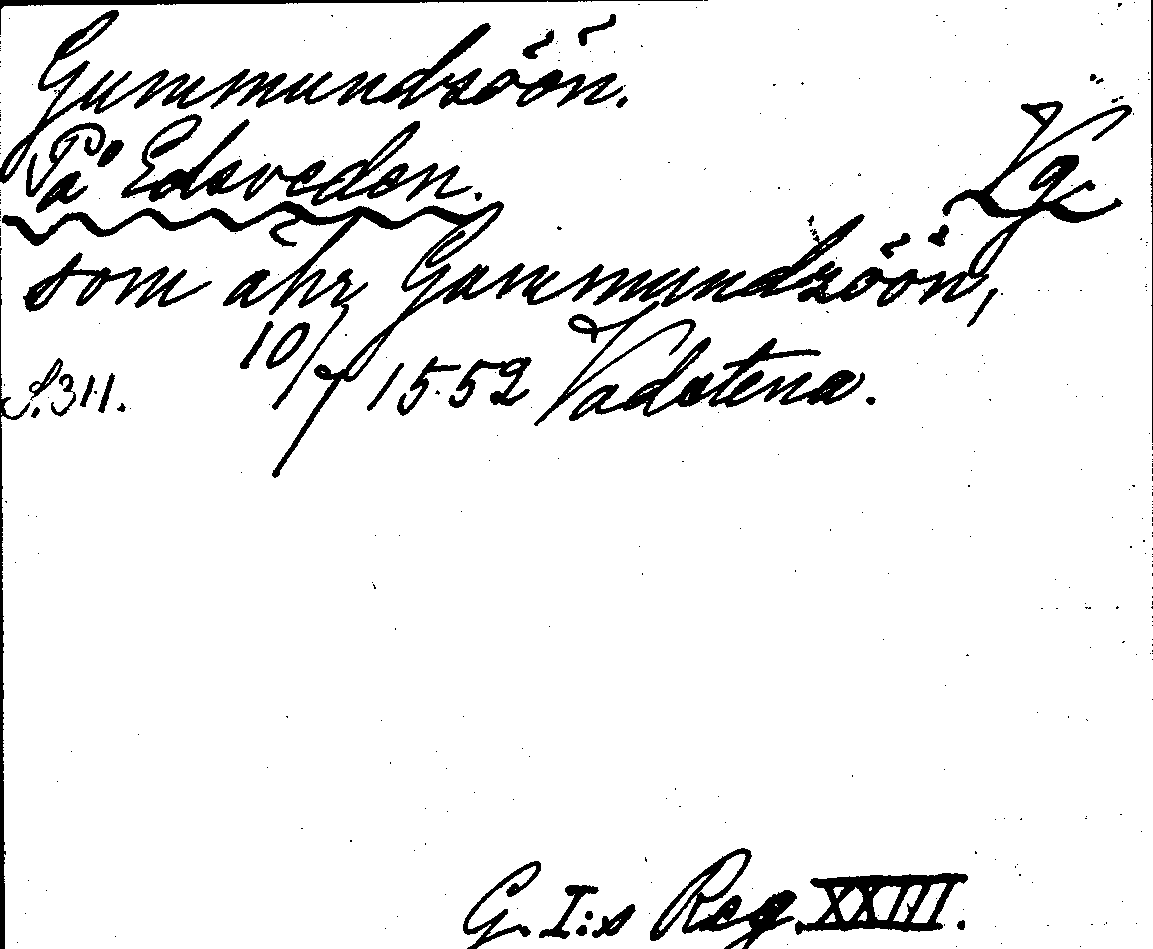 Gummundsöön.
På Edsveden. Vg.
som ähr Gummundzöön,
S. 311. 10/7 1552 Vadstena.
G. I:s Reg. XXIII.